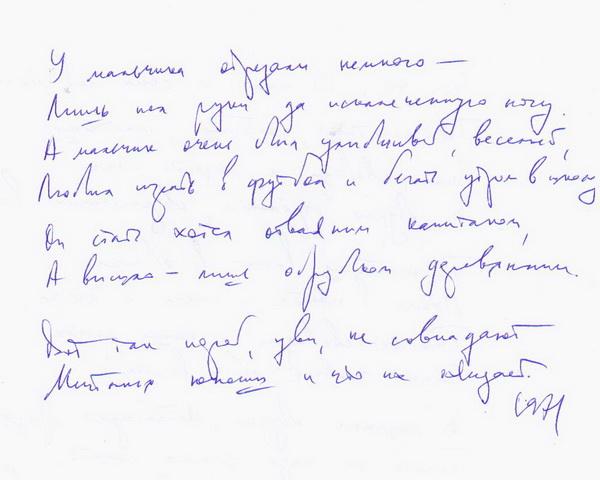 У мальчика отрезали немного —
Лишь пол руки да искалеченную ногу.
А мальчик очень был улыбчивый, веселый,
Любил играть в футбол и бегать утром в школу
Он стать хотел отважным капитаном,
А вышло — лишь обрубком деревянным.
Вот так порой, увы, не совпадают
Мечтанья юноши и что их ожидает.
1971